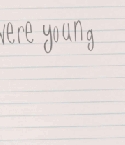 were young